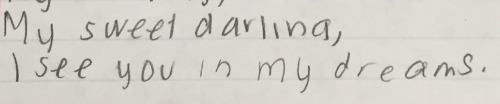 My sweet darling,
I see you in my dreams.